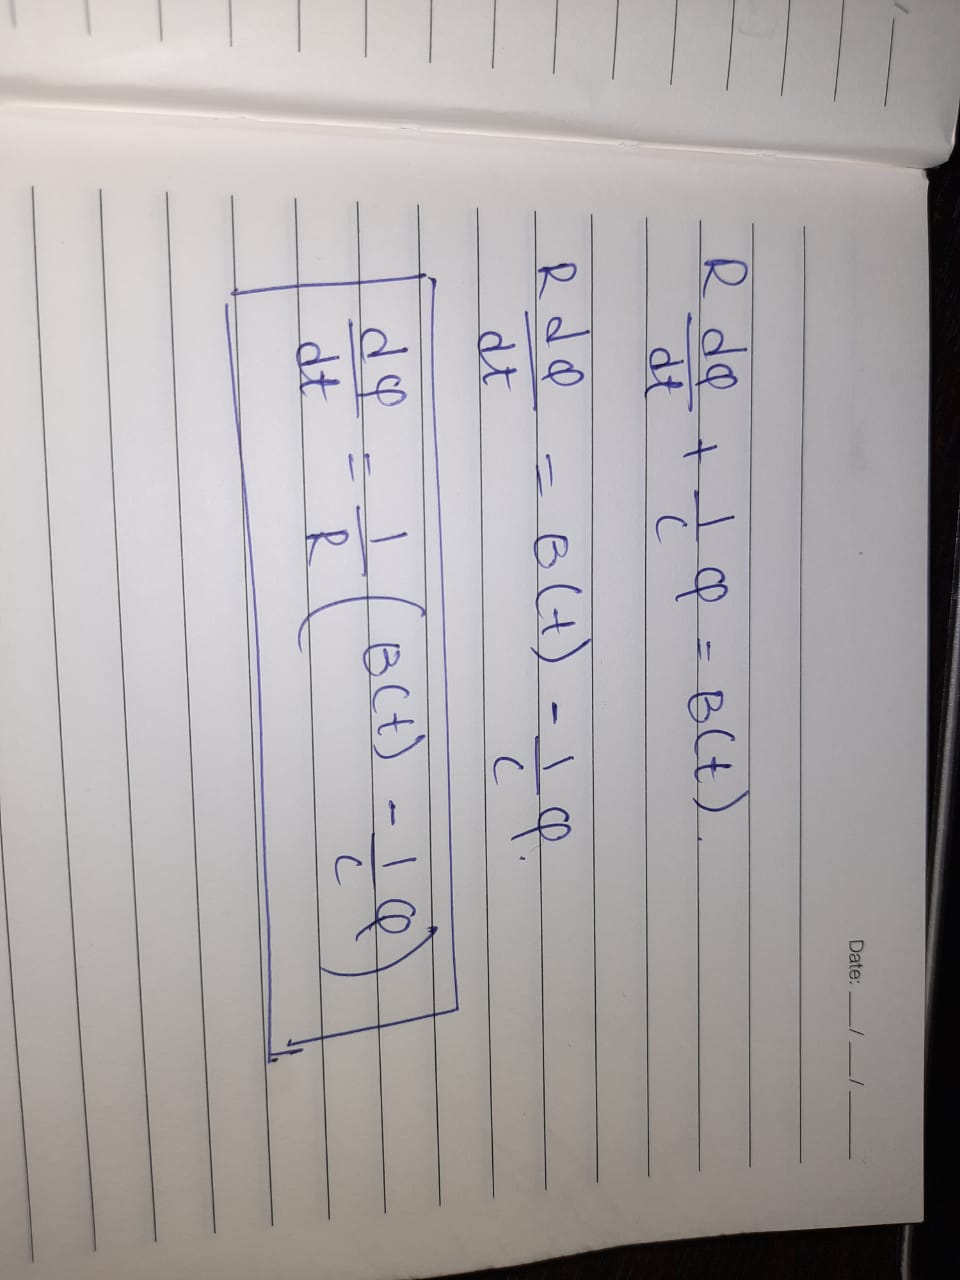 Date: __/__/____
R dφ/dt + 1/C φ = B(t).
R dφ/dt = B(t) - 1/C φ.
dφ/dt = 1/R ( B(t) - 1/C φ )